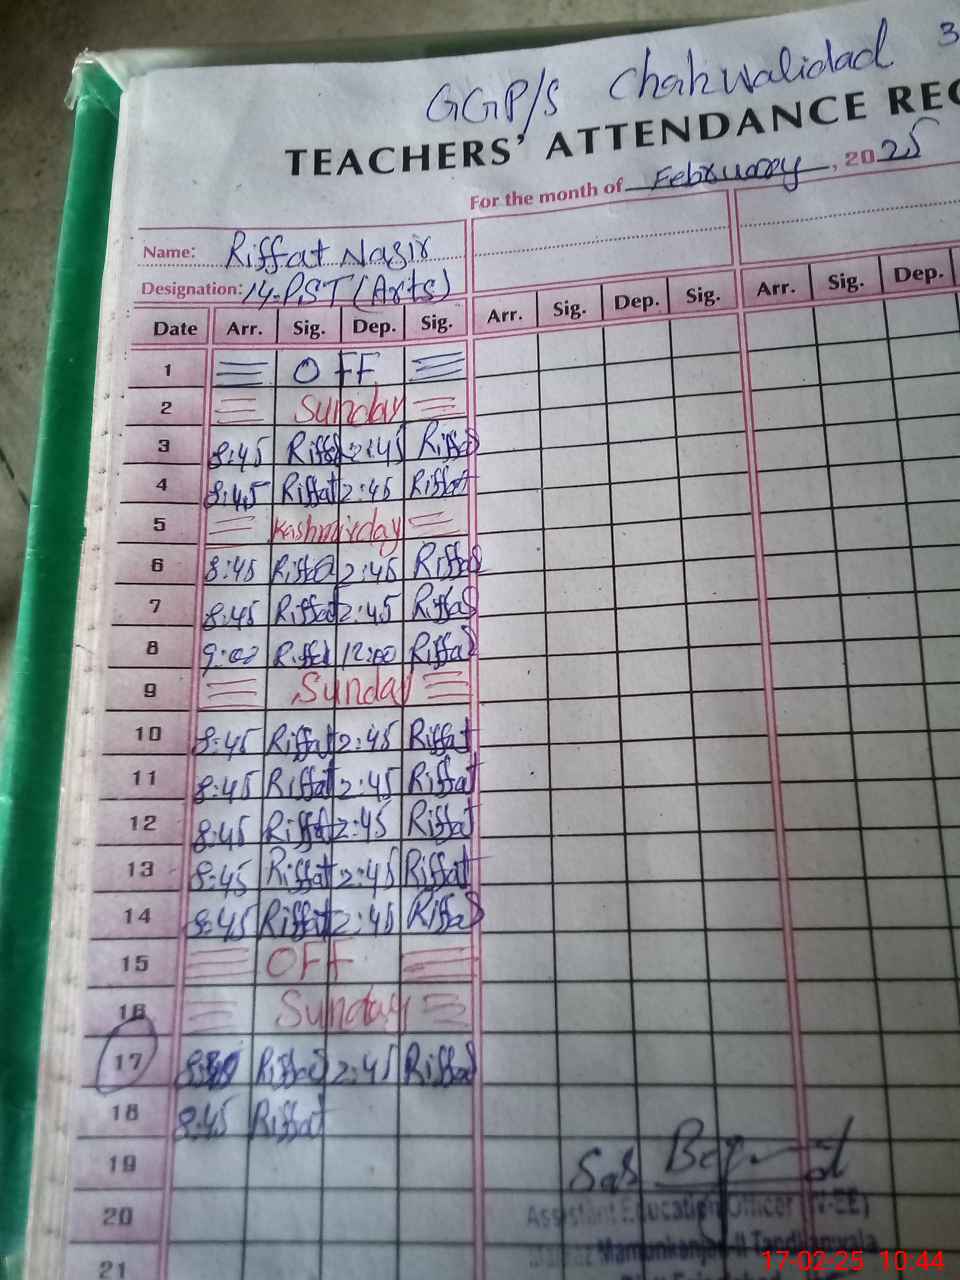 GGP/S Chakwalidad 3
TEACHERS' ATTENDANCE REC
For the month of February, 2025
Name: Riffat Nasir
Designation: 14-PST (Arts)
Date Arr. Sig. Dep. Sig. Arr. Sig. Dep. Sig. Arr. Sig. Dep.
1 OFF
2 Sunday
3 8:45 Riffat 2:45 Riffat
4 8:45 Riffat 2:45 Riffat
5 Kashmir day
6 8:45 Riffat 2:45 Riffat
7 8:45 Riffat 2:45 Riffat
8 9:00 Riffat 12:00 Riffat
9 Sunday
10 8:45 Riffat 2:45 Riffat
11 8:45 Riffat 2:45 Riffat
12 8:45 Riffat 2:45 Riffat
13 8:45 Riffat 2:45 Riffat
14 8:45 Riffat 2:45 Riffat
15 OFF
16 Sunday
17 Riffat 2:45 Riffat
18 8:45 Riffat
19
20
Assistant Education Officer (W-EE)
Markaz Mamunkanjan-II Tandlianwala
21
17-02-25 10:44